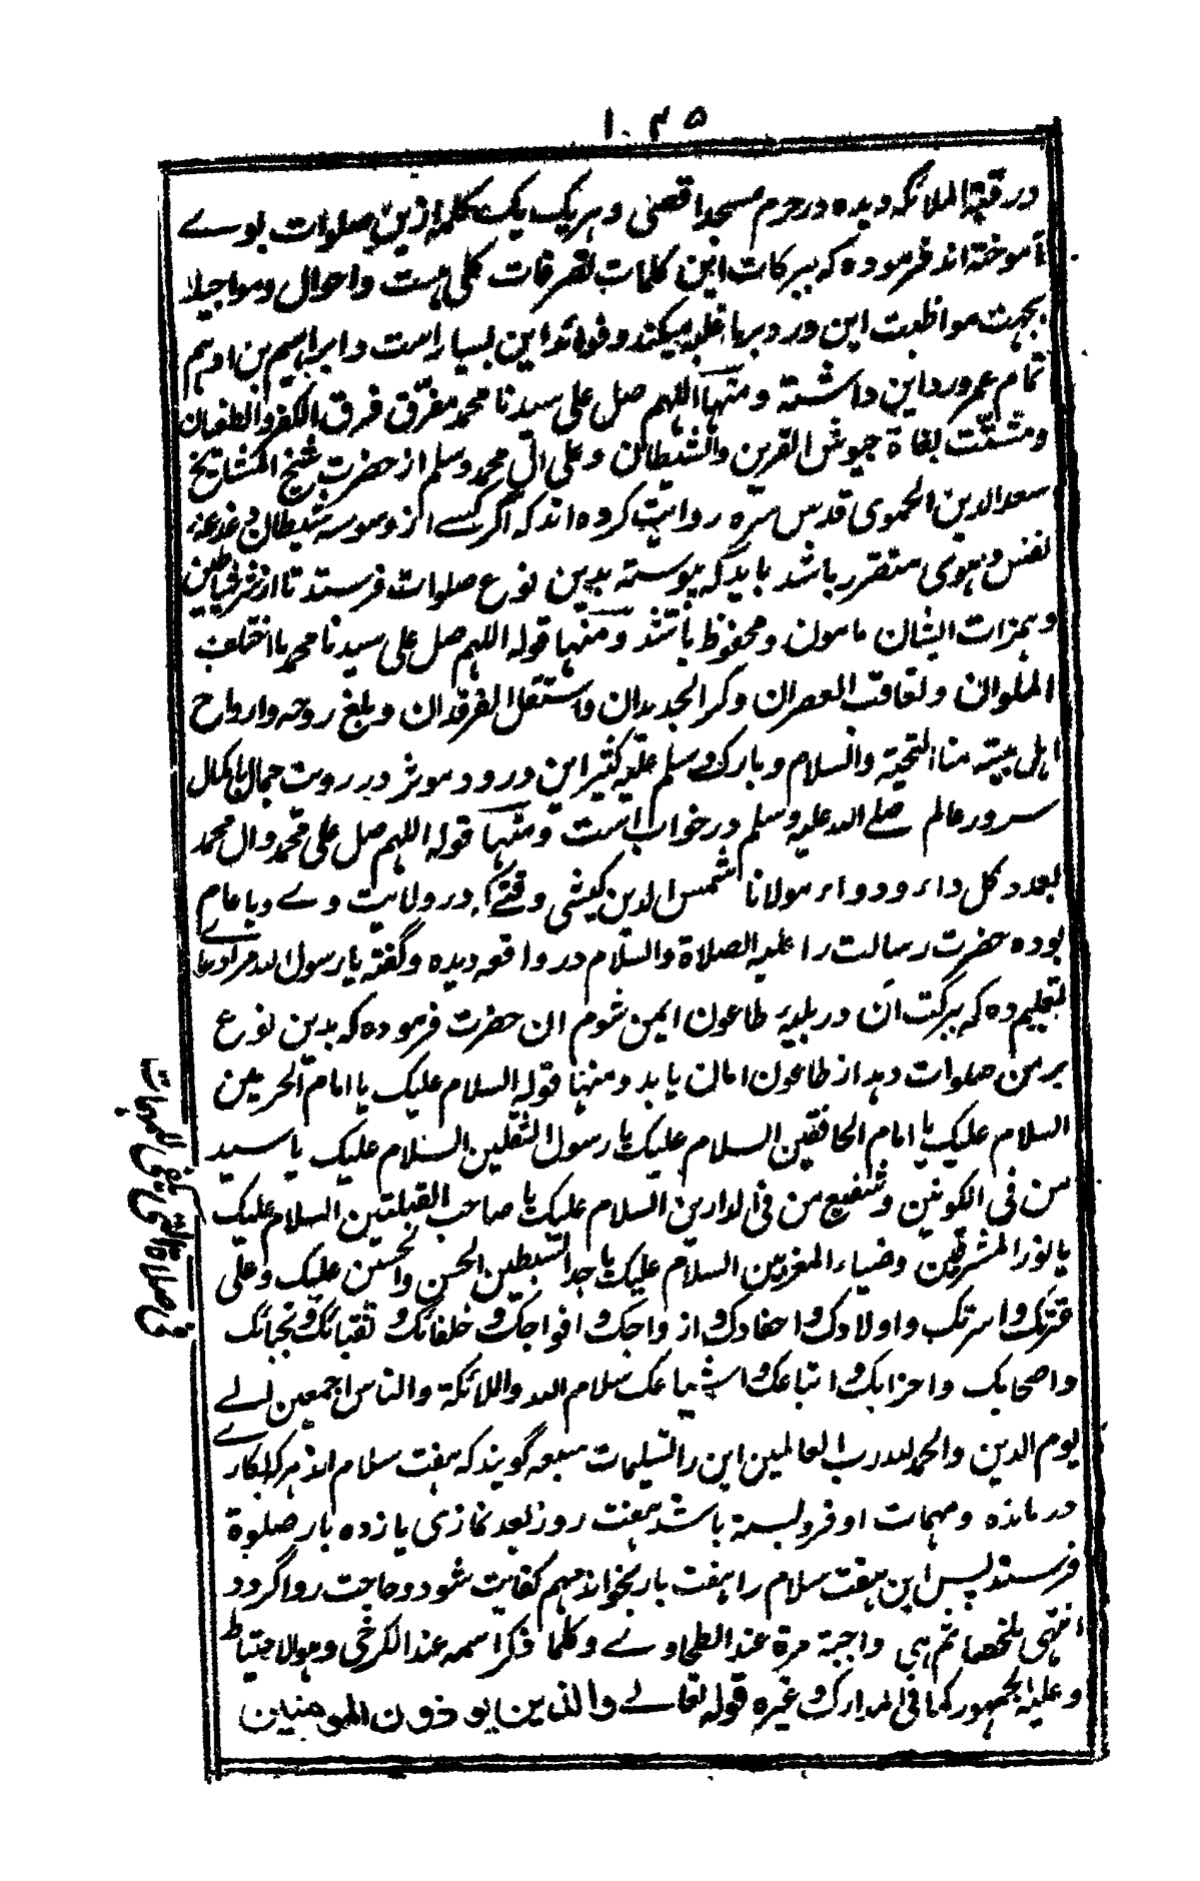 ۱۰۴۵
در قبة الملائکه دیده در حرم مسجد اقصی و هر یک یک کلمه ازین صلوات بوے
آموخته اند فرموده که ببرکات این کلمات تصرفات کلی هست و احوال و مواجید
بجهت مواظبت این ورد بر ما غلبه میکند و فوائد این بسیار است و ابراهیم بن ادهم
تمام عمر ورد این داشته و منها اللهم صل علی سیدنا محمد مفرق فرق الکفر والطغیان
و مشتت بغاة جیوش القرین والشیطان و علی ال محمد وسلم از حضرت شیخ المشائخ
سعد الدین الحموی قدس سره روایت کرده اند که اگر کسے از وسوسه شیطان و دغدغه
نفس و هوی متضرر باشد باید که پیوسته بدین نوع صلوات فرستد تا از شر شیاطین
و همزات ایشان مامون و محفوظ باشند و منها قوله اللهم صل علی سیدنا محمد ما اختلف
الملوان و تعاقب العصران و کر الجدیدان و استقل الفرقدان و بلغ روحه و ارواح
اهل بیته منا التحیة والسلام و بارک وسلم علیه کثیرا این درود موثر در رویت جمال باکمال
سرور عالم صلے الله علیه وسلم در خواب است و منها قوله اللهم صل علی محمد و ال محمد
بعدد کل داء ودواء مولانا شمس الدین کیشی وقتے که در ولایت وے وبا عام
بوده حضرت رسالت را علیه الصلاة والسلام در واقعه دیده و گفته یا رسول الله مرا دعاے
تعلیم ده که ببرکت آن در بلیه طاعون ایمن شوم ان حضرت فرموده که بدین نوع
بر من صلوات دهد از طاعون امان یابد و منها قوله السلام علیک یا امام الحرمین
السلام علیک یا امام الخافقین السلام علیک یا رسول الثقلین السلام علیک یا سید
من فی الکونین و شفیع من فی الدارین السلام علیک یا صاحب القبلتین السلام علیک
یا نور المشرقین و ضیاء المغربین السلام علیک یا جد السبطین الحسن والحسین علیک و علی
عترتک و اسرتک و اولادک و احفادک و ازواجک و افواجک و خلفائک و نقبائک و نجبائک
و اصحابک و احزابک و اتباعک و اشیاعک سلام الله والملائکة والناس اجمعین الے
یوم الدین والحمد لله رب العالمین این را تسلیمات سبعه گویند که هفت سلام اند هر که بکارے
درمانده و مهمات او فروبسته باشد هفت روز بعد نمازی یازده بار صلوة
فرستد پس این هفت سلام را هفت بار بخواند مهم کفایت شود و حاجت روا گردد
انتهی ملخصا ثم هی واجبة مرة عند الطحاوے وکلما ذکر اسمه عند الکرخی وهو الاحتیاط
وعلیه الجمهور کما فی المدارک وغیره قوله تعالے والذین یوذون المومنین